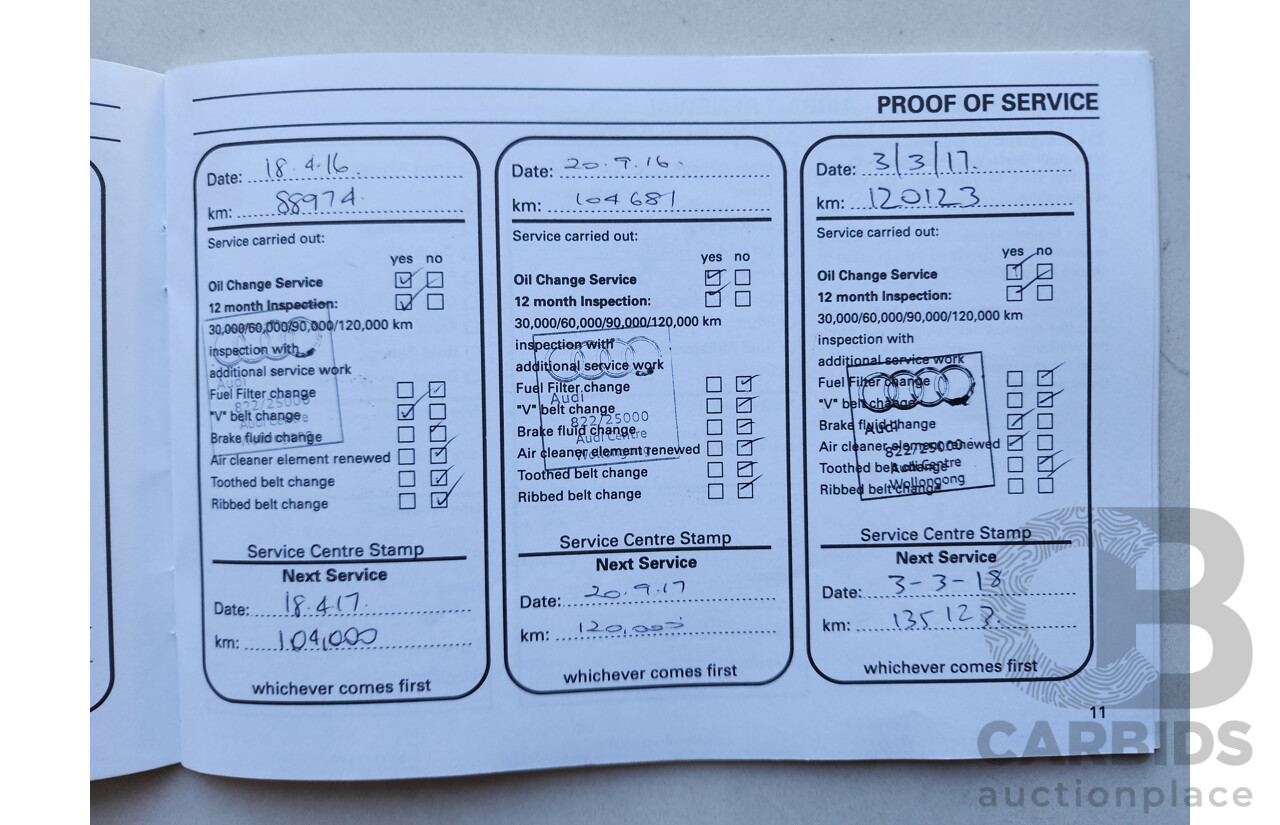 PROOF OF SERVICE
Date: 18.4.16.
km: 88974
Service carried out:
yes no
Oil Change Service
12 month Inspection:
30,000/60,000/90,000/120,000 km
inspection with
additional service work
Fuel Filter change
"V" belt change
Brake fluid change
Air cleaner element renewed
Toothed belt change
Ribbed belt change
Audi
822/25000
Audi Centre
Service Centre Stamp
Next Service
Date: 18.4.17.
km: 104,000
whichever comes first
Date: 20.9.16.
km: 104681
Service carried out:
yes no
Oil Change Service
12 month Inspection:
30,000/60,000/90,000/120,000 km
inspection with
additional service work
Fuel Filter change
"V" belt change
Brake fluid change
Air cleaner element renewed
Toothed belt change
Ribbed belt change
Audi
822/25000
Audi Centre
Wollongong
Service Centre Stamp
Next Service
Date: 20.9.17
km: 120,000
whichever comes first
Date: 3/3/17.
km: 120123
Service carried out:
yes no
Oil Change Service
12 month Inspection:
30,000/60,000/90,000/120,000 km
inspection with
additional service work
Fuel Filter change
"V" belt change
Brake fluid change
Air cleaner element renewed
Toothed belt change
Ribbed belt change
Audi
822/25000
Audi Centre
Wollongong
Service Centre Stamp
Next Service
Date: 3-3-18
km: 135123.
whichever comes first
11
CB
CARBIDS
auctionplace